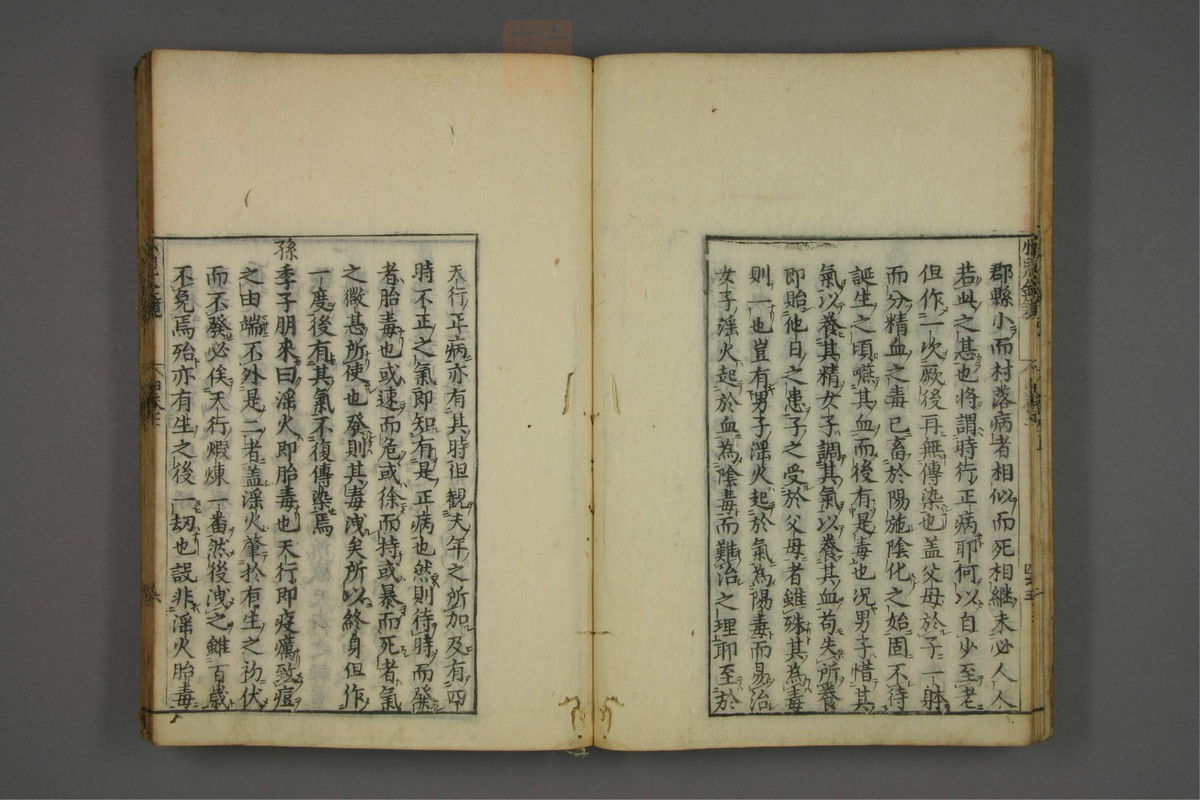 郡縣小而村落病者相似而死相繼未必人人
若此之甚也將謂時行正病耶何以自少至老
但作一次厥後再無傳染也盖父母於子一躰
而分精血之毒已畜於陽施陰化之始固不待
誕生之頃嚥其血而後有是毒也况男子惜其
氣以養其精女子調其氣以養其血苟失所養
即貽他日之患子之受於父母者雖殊其為毒
則一也豈有男子淫火起於氣為陽毒而易治
女子淫火起於血為陰毒而難治之理耶至於
天行正病亦有其時但観夫年之所加及有四
時不正之氣即知有是正病也然則待時而發
者胎毒也或速而危或徐而持或暴而死者氣
之微甚所使也發則其毒洩矣所以終身但作
一度後有其氣不復傳染焉
孫季子朋來曰淫火即胎毒也天行即疫癘致痘
之由端不外是二者盖淫火肇於有生之初伏
而不發必俟天行煆煉一番然後洩之雖百歳
不免焉殆亦有生之後一刼也設非淫火胎毒